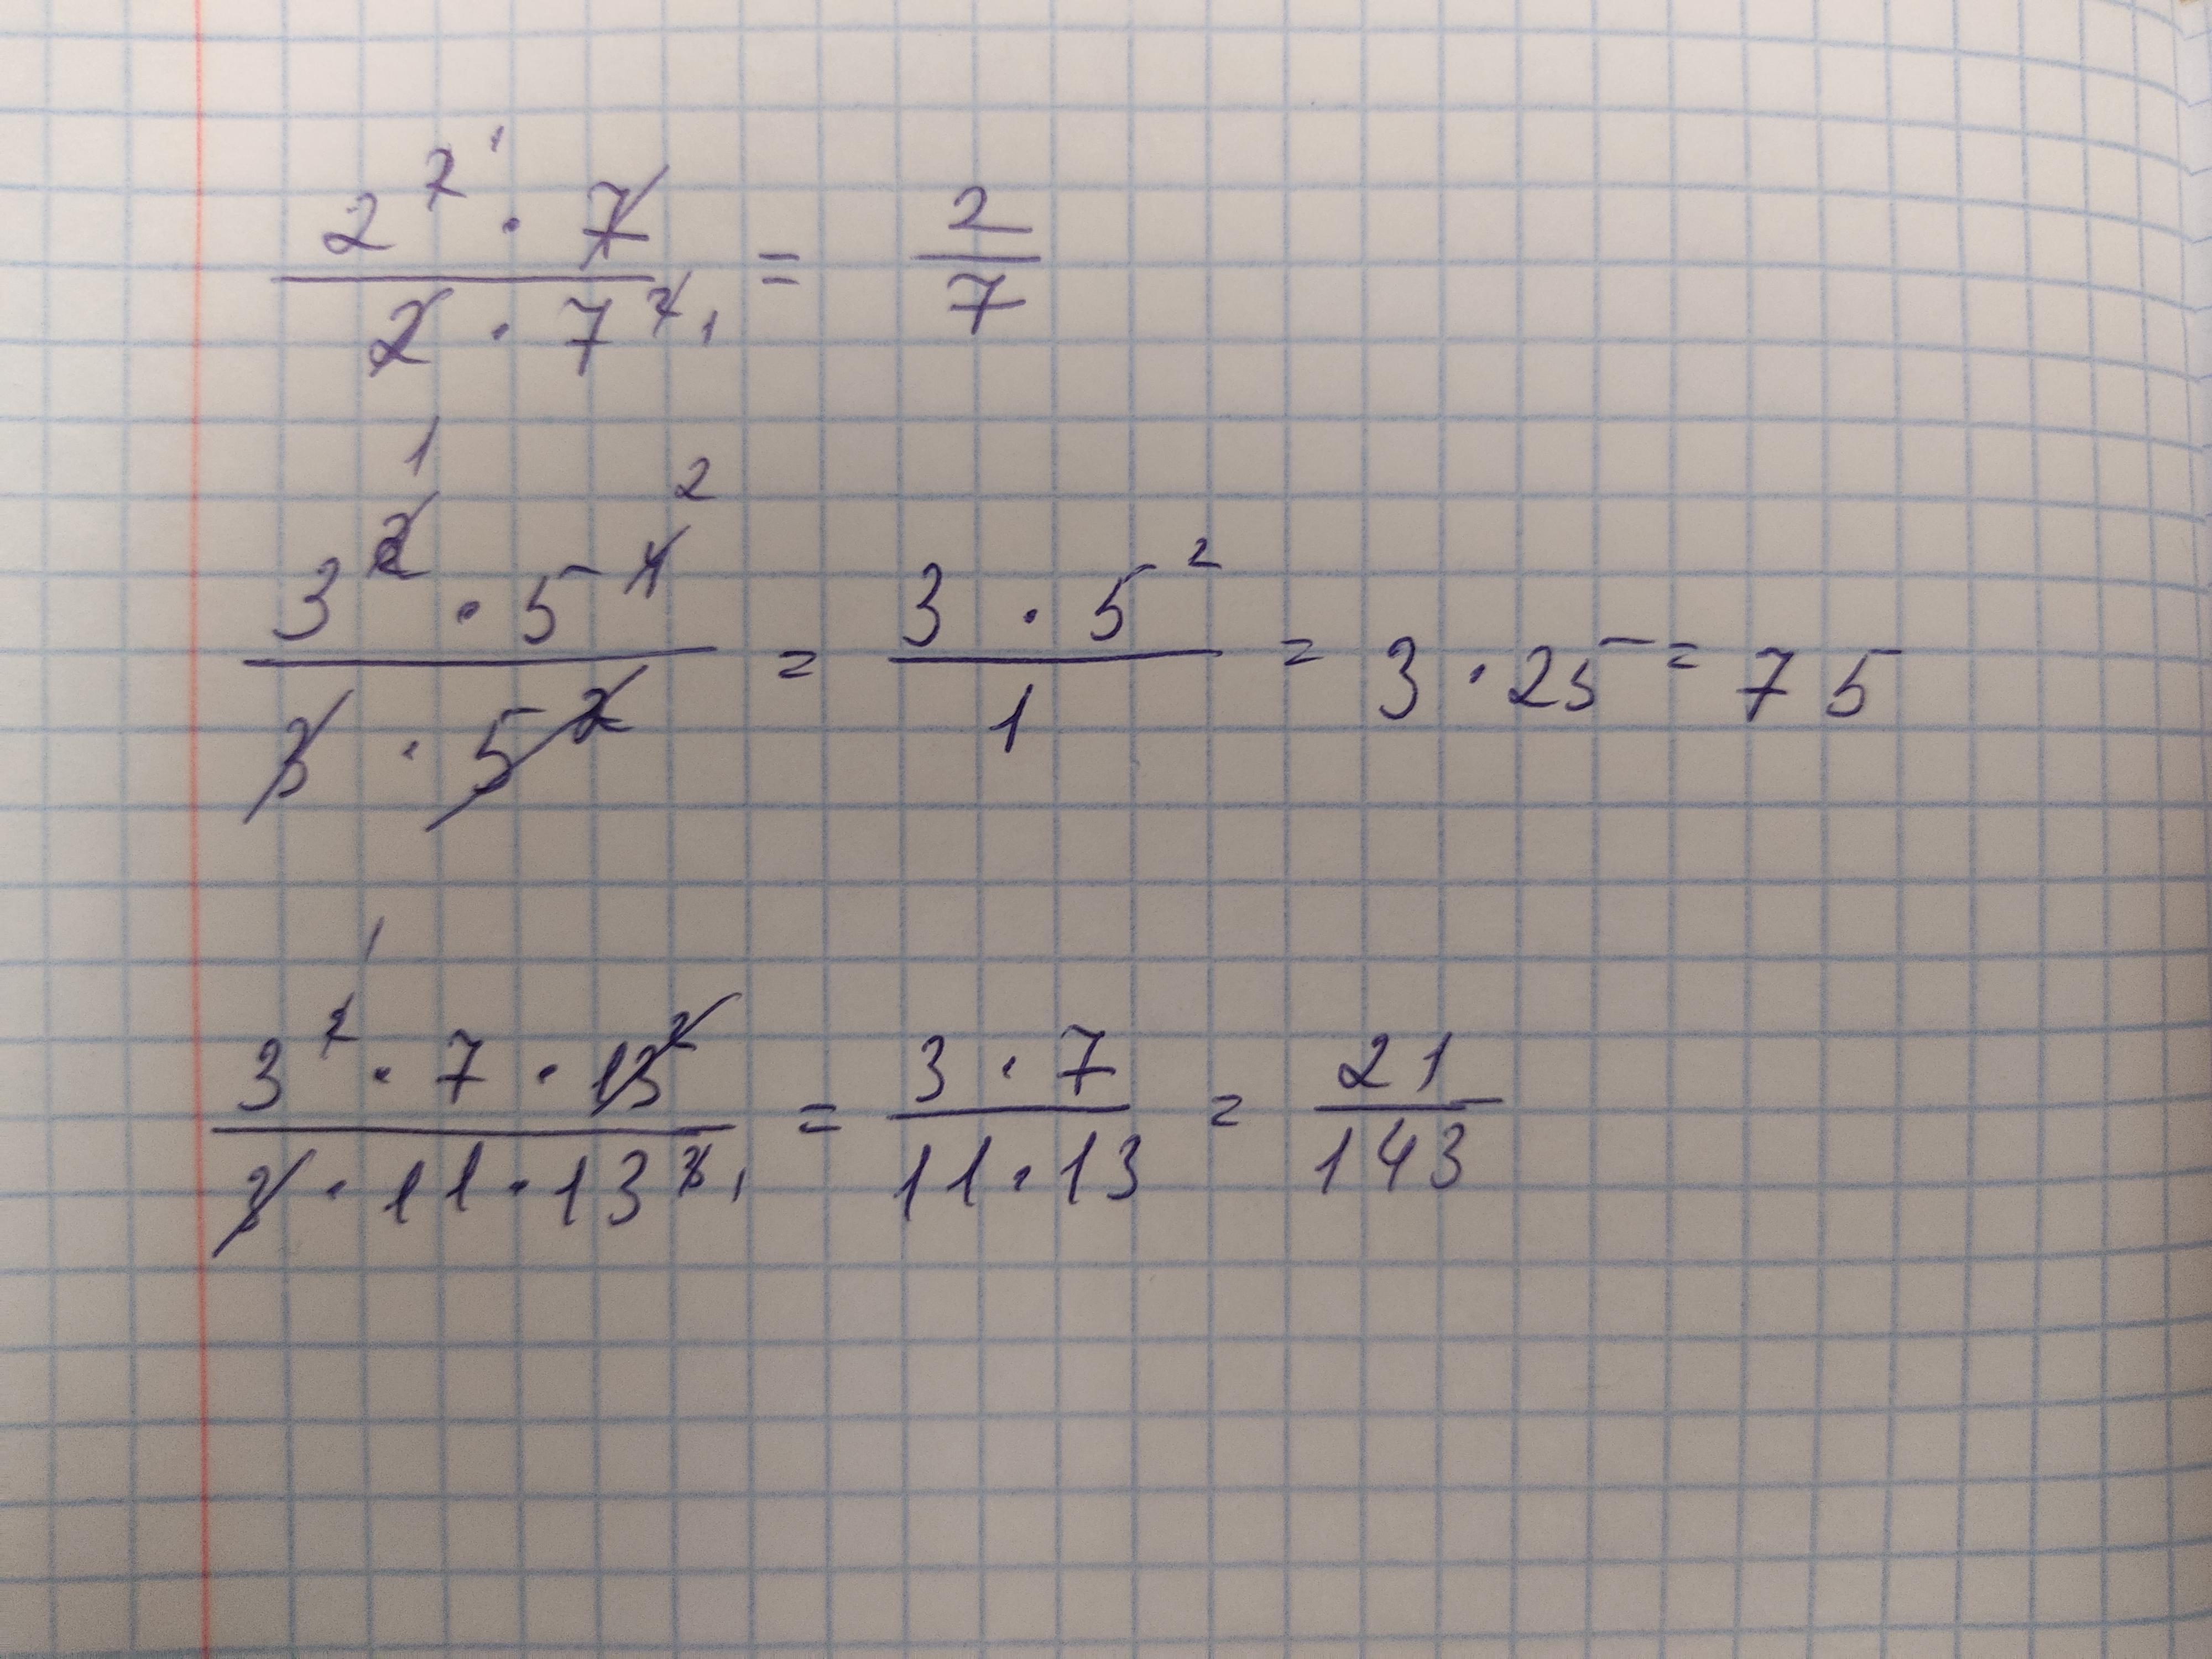 2^2 1 · 7 / 2 · 7^2 1 = 2 / 7
3^2 1 · 5^4 2 / 3 · 5^2 = 3 · 5^2 / 1 = 3 · 25 = 75
3^2 1 · 7 · 13^2 / 3 · 11 · 13^3 1 = 3 · 7 / 11 · 13 = 21 / 143